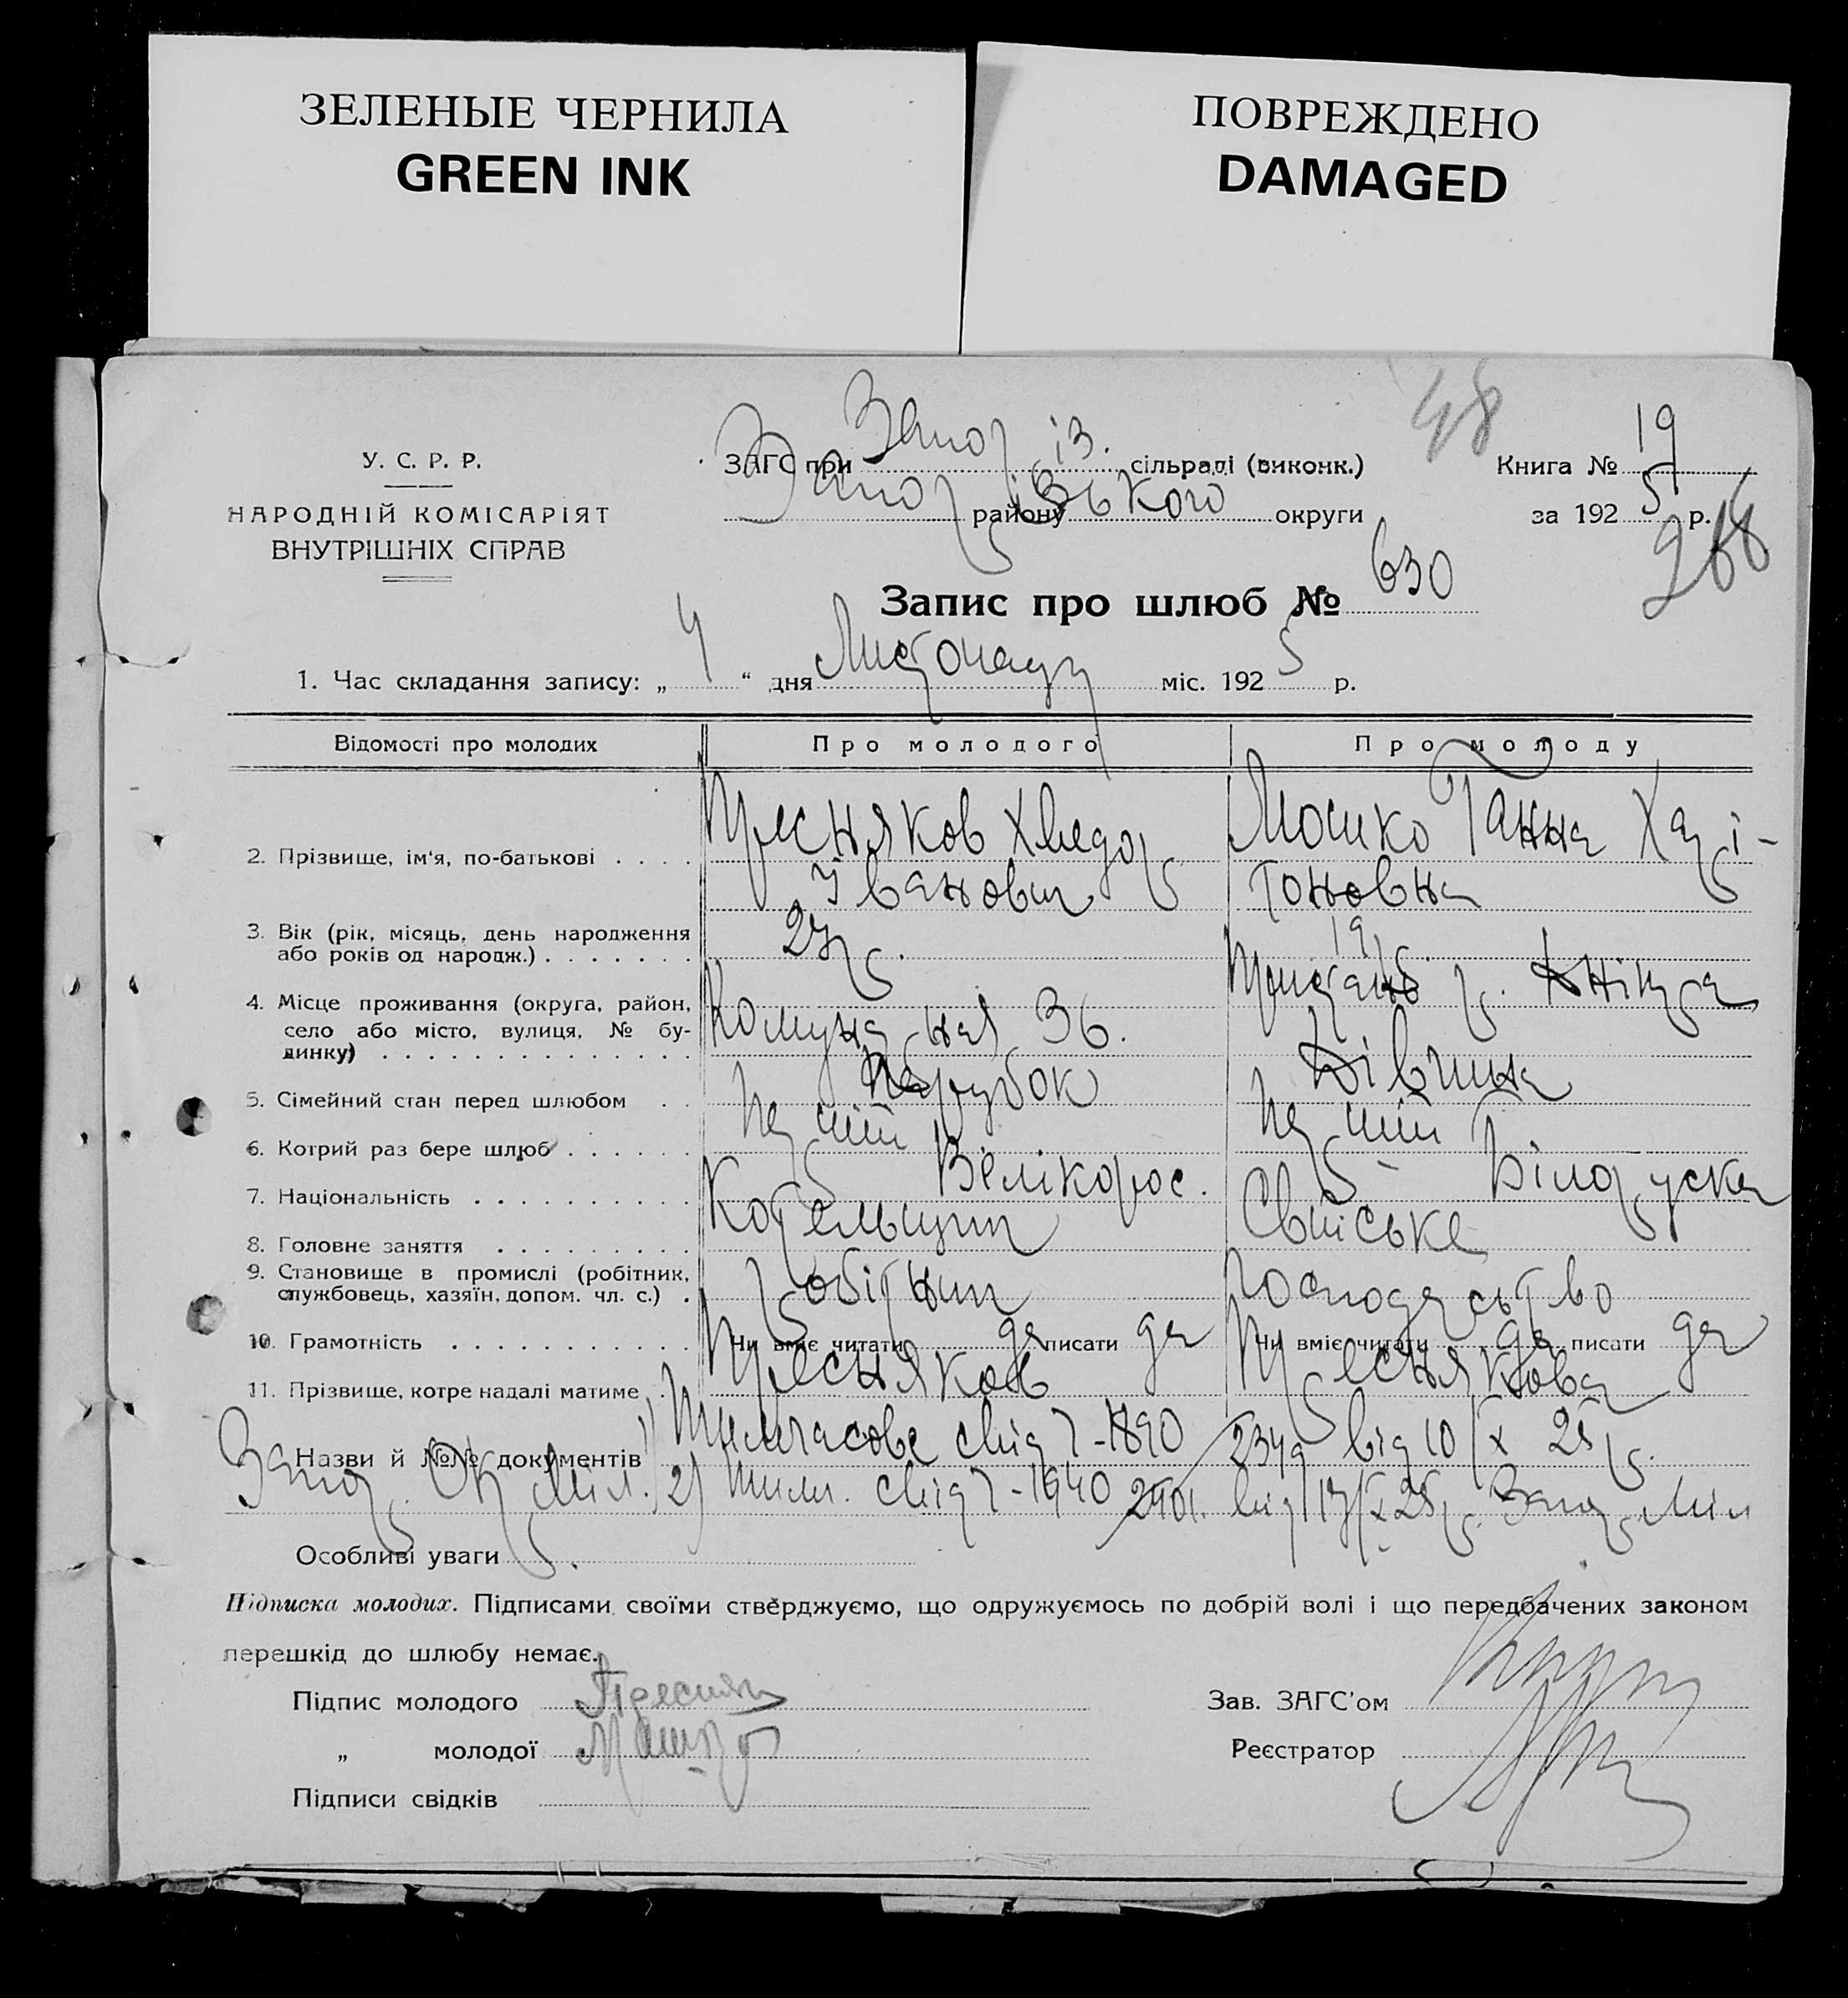 ЗЕЛЕНЫЕ ЧЕРНИЛА
GREEN INK
ПОВРЕЖДЕНО
DAMAGED
48
У. С. Р. Р.
НАРОДНІЙ КОМІСАРІЯТ
ВНУТРІШНІХ СПРАВ
ЗАГС при Запоріз. сільраді (виконк.)
Запорізького району округи
Книга № 19
за 1925 р.
Запис про шлюб № 630
1. Час складання запису: „ 4 “ дня Листопаду міс. 1925 р.
Відомості про молодих Про молодого Про молоду
2. Прізвище, ім'я, по-батькові . . . . Пресняков Хведор Іванович Мошко Ганна Харітоновна
3. Вік (рік, місяць, день народження
або років од народж.) . . . . . . . 27 р. 19 р.
4. Місце проживання (округа, район,
село або місто, вулиця, № бу-
динку) . . . . . . . . . . Комунарная 36. Пристань р. Дніпра
5. Сімейний стан перед шлюбом . . Парубок Дівчина
6. Котрий раз бере шлюб . . . . . . Перший Перший
7. Національність . . . . . . . . . . Велікорос. Білоруска
8. Головне заняття . . . . . . . . . Котельщик Свійське
9. Становище в промислі (робітник,
службовець, хазяїн, допом. чл. с.) . робітник господарство
10. Грамотність . . . . . . . . . . . Чи вміє читати да писати да Чи вміє читати да писати да
11. Прізвище, котре надалі матиме . Пресняков Преснякова
Назви й №№ документів 1) Тимчасове свід 7-1890/2349 від 10/X 25 р.
Запор. Окр Міл. 2) тимч. свід 7-1940/2401. від 17/X 25 р. Запор. Міл
Особливі уваги
Підписка молодих. Підписами своїми стверджуємо, що одружуємось по добрій волі і що передбачених законом
перешкід до шлюбу немає.
Підпис молодого Пресняк
„ молодої
Підписи свідків
Зав. ЗАГС’ом
Реєстратор